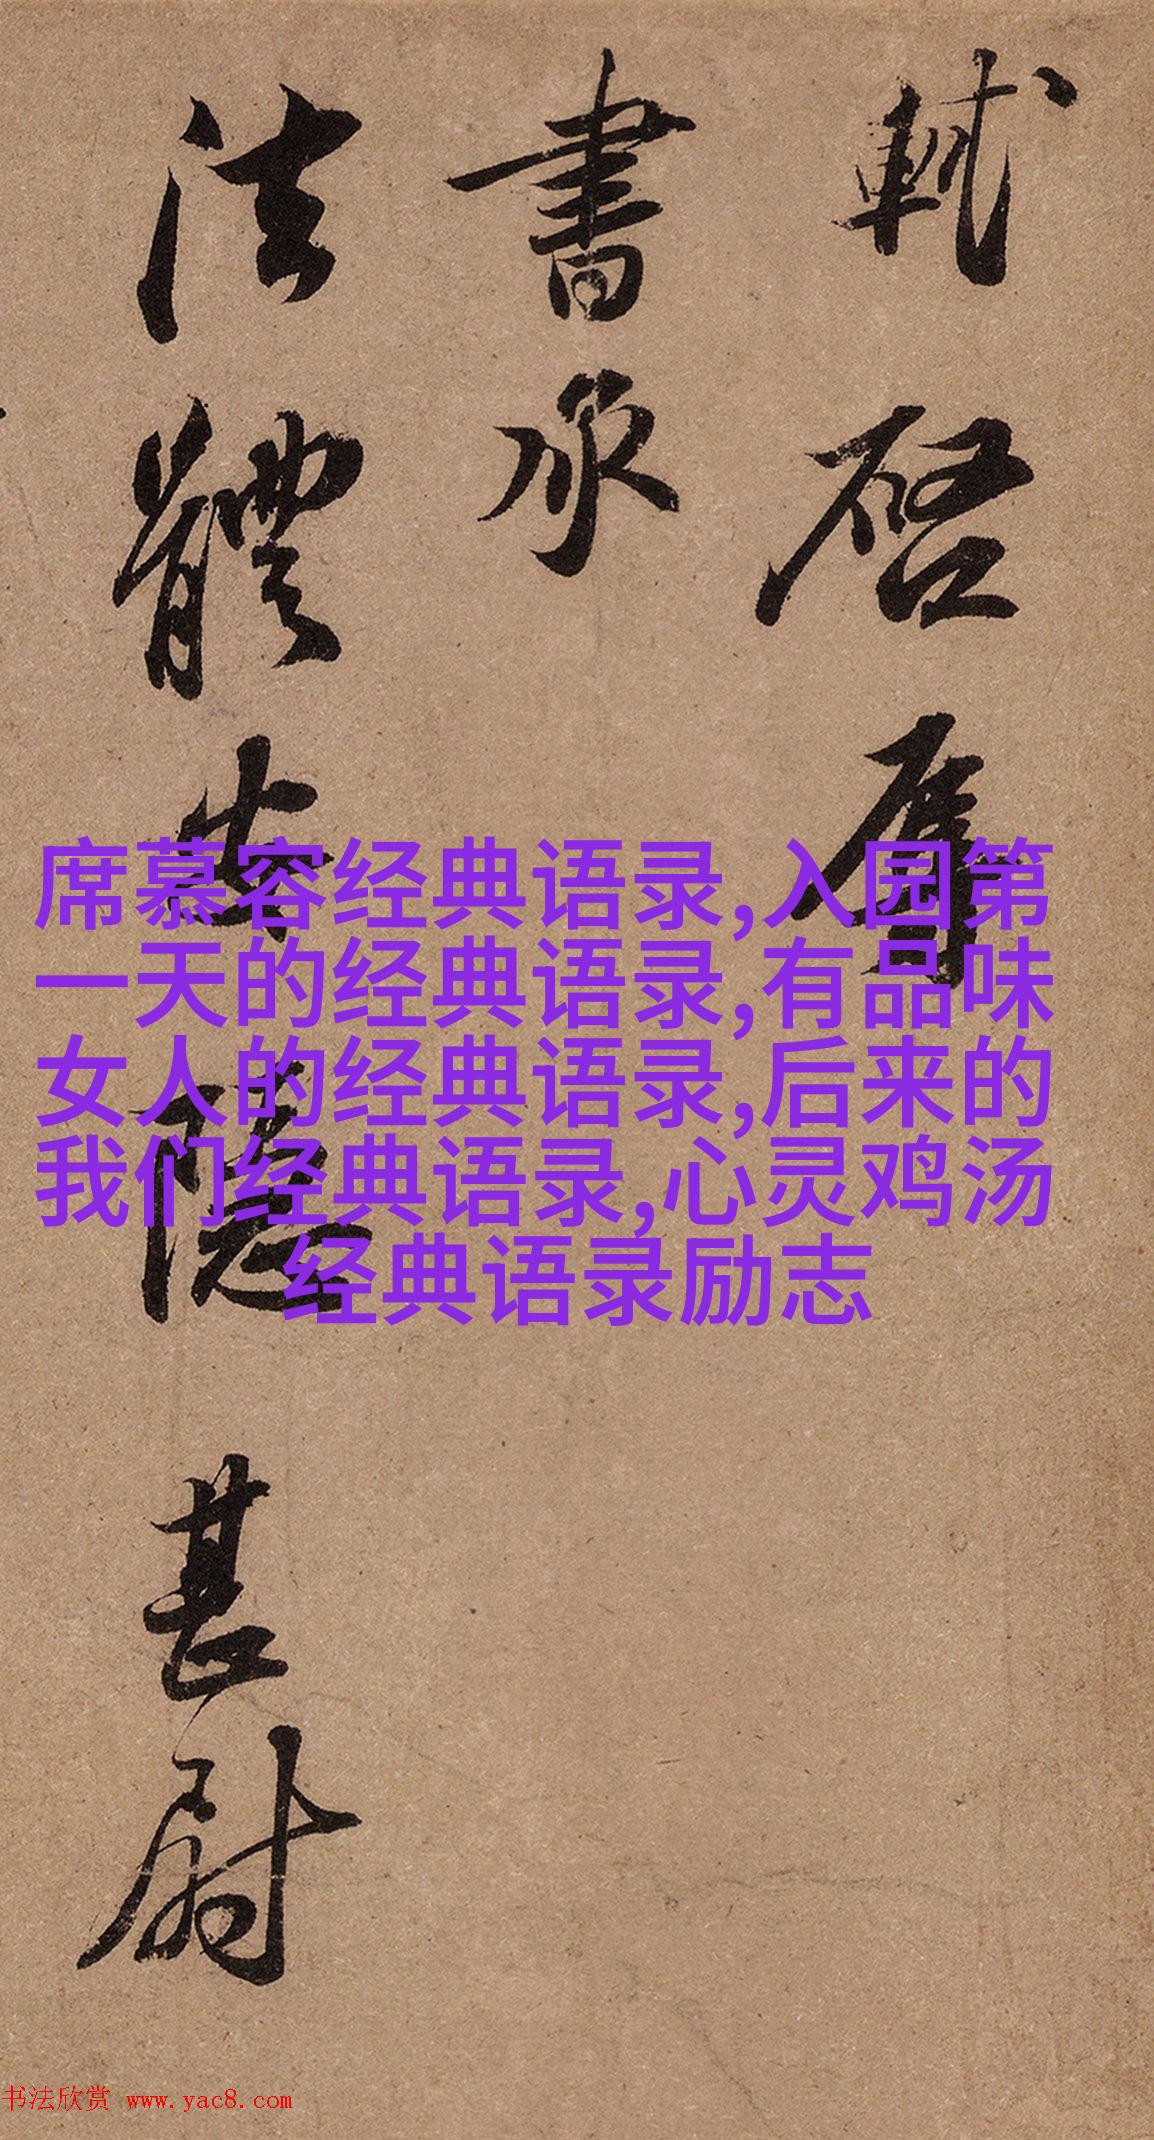 軾啓辱
書承
法體安隱甚尉
席慕容经典语录,入园第
一天的经典语录,有品味
女人的经典语录,后来的
我们经典语录,心灵鸡汤
经典语录励志
书法欣赏 www.yac8.com